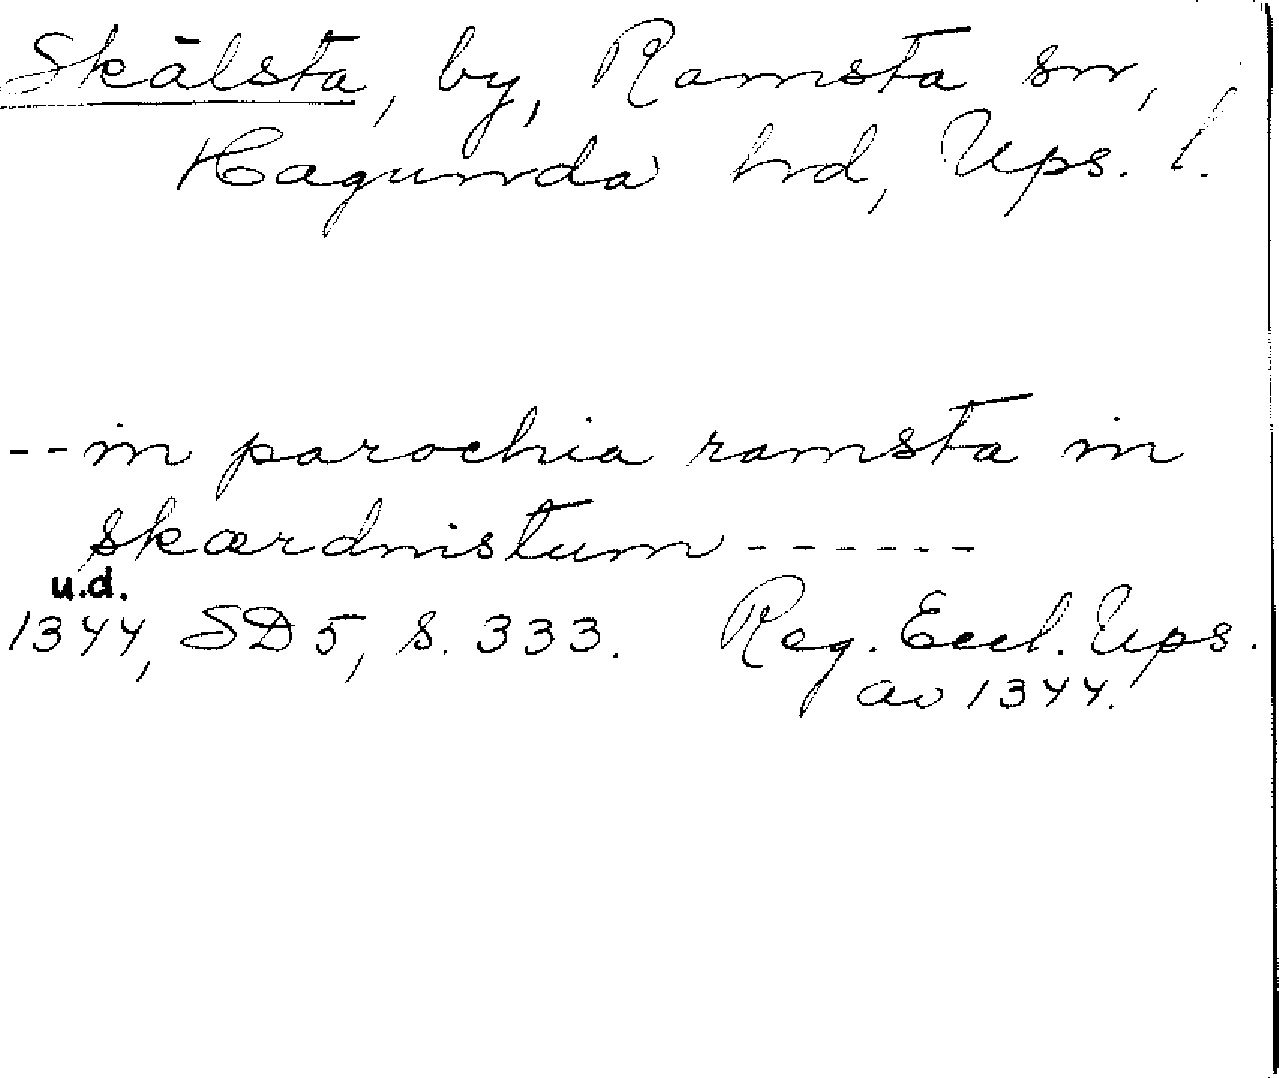 Skälsta, by, Ramsta sn,
Hagunda hd, Ups. l.
--in parochia ramsta in
skærdnistum------
u.d.
1344, SD 5, s. 333. Reg. Eccl. Ups.
av 1344.